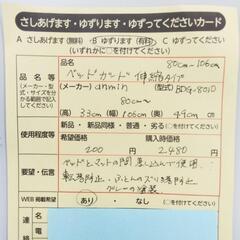 さしあげます・ゆずります・ゆずってくださいカード
A さしあげます(無料) B ゆずります(有料) C ゆずってください
(いずれかに○を付けてください)
80cm~106cm
品名等
(メーカー・型式・サイズを分かる範囲で記入してください)
ベッドガード 伸縮タイプ
(メーカー) anmin (型式) BDG-8010
80cm~
(高) 33cm (幅) 106cm (奥) 49cm
使用程度等
新品・新品同様・普通・劣る(○を付けてください)
希望価格 購入時価格
200 円 2480 円
要望・伝言
ベッドとマットの間 差し込んで使用
転落防止、ふとんのズリ落ち防止
グレーの塗装
WEB掲載希望 あり・なし (○を付けてください)
連
絡
電